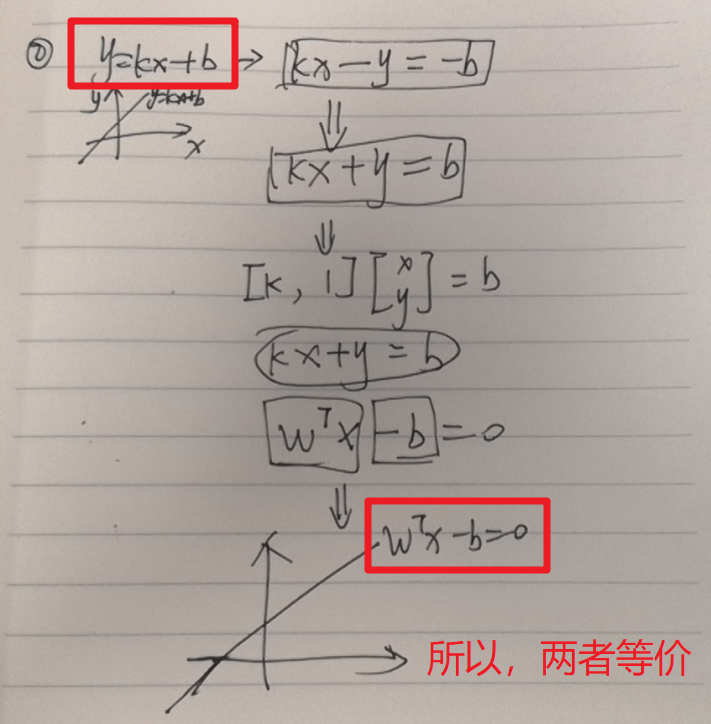 ② y=kx+b → kx-y=-b
y y=kx+b
x
⇓
kx+y=b
⇓
[k, 1] [x y] = b
kx+y=b
wᵀx -b =0
⇓
wᵀx-b=0
所以，两者等价